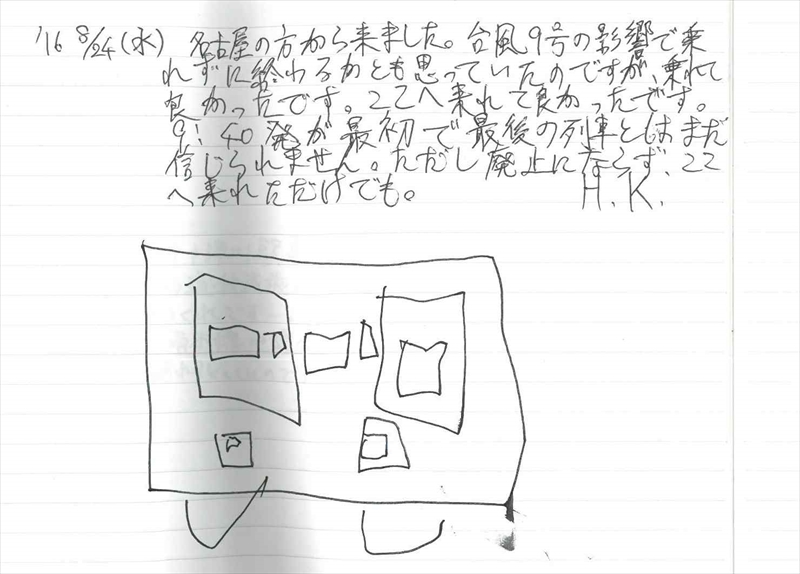 '16 8/24(水) 名古屋の方から来ました。台風9号の影響で乗
れずに終わるかとも思っていたのですが、乗れて
良かったです。ここへ来れて良かったです。
9:40発が最初で最後の列車とはまだ
信じられません。ただし廃止にならず、ここ
へ来れただけでも。 H.K.